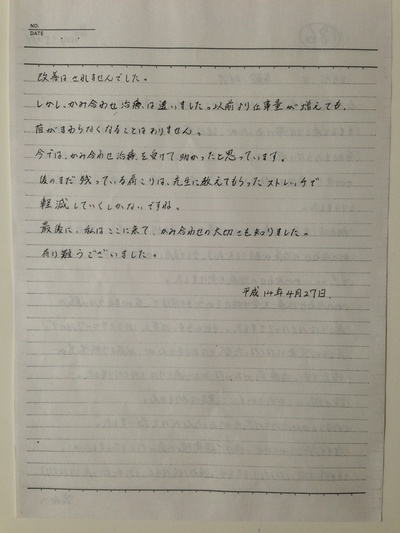 NO.
DATE
改善はされませんでした。
しかし、かみ合わせ治療は違いました。以前より仕事量が増えても、
首がまわらなくなることはありません。
今では、かみ合わせ治療を受けて助かったと思っています。
後のまだ残っている肩こりは、先生に教えてもらったストレッチで
軽減していくしかないですね。
最後に、私はここに来て、かみ合わせの大切さを知りました。
有り難うございました。
平成14年4月27日.